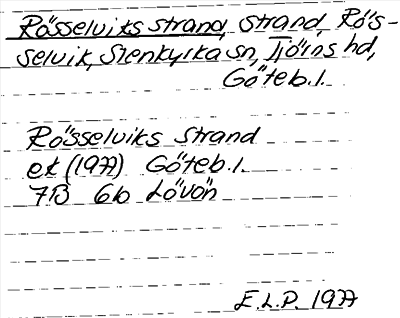 Rösselviks strand, strand, Rös-
selvik, Stenkyrka sn, Tjörns hd,
Göteb.l.
Rösselviks strand
ek (1977) Göteb.l.
7B 6b Lövön
E.L.P. 1977